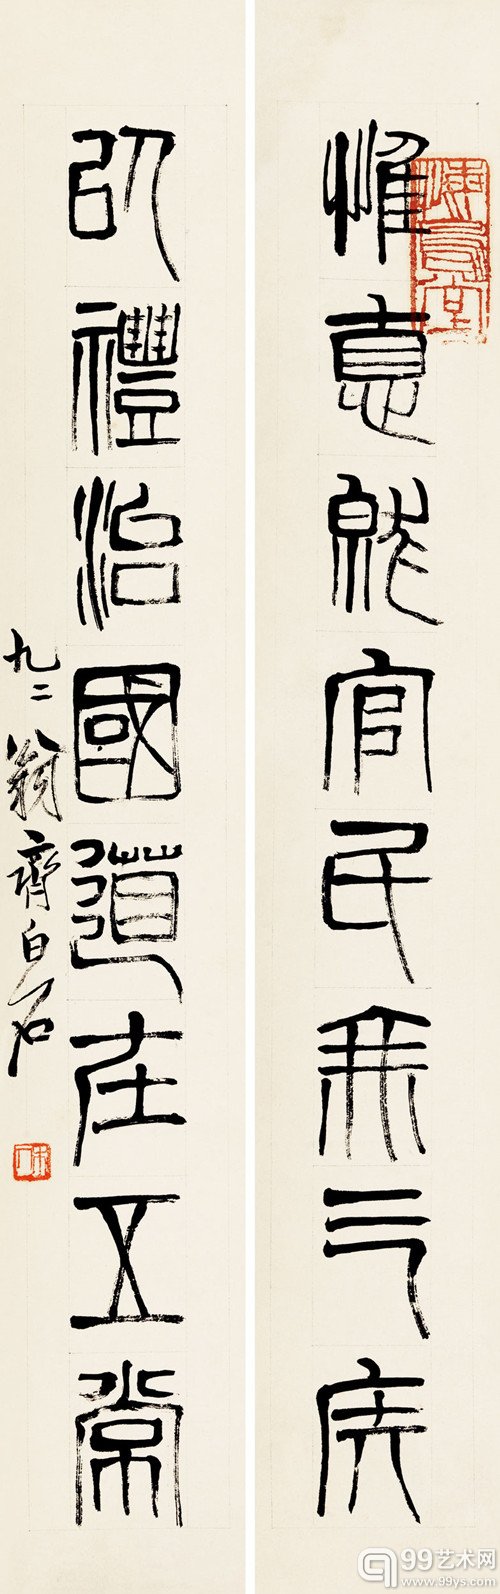 惟悳官民
㠯禮治國道在五常
九二翁齊白石
悔烏堂
99艺术网
www.99ys.com